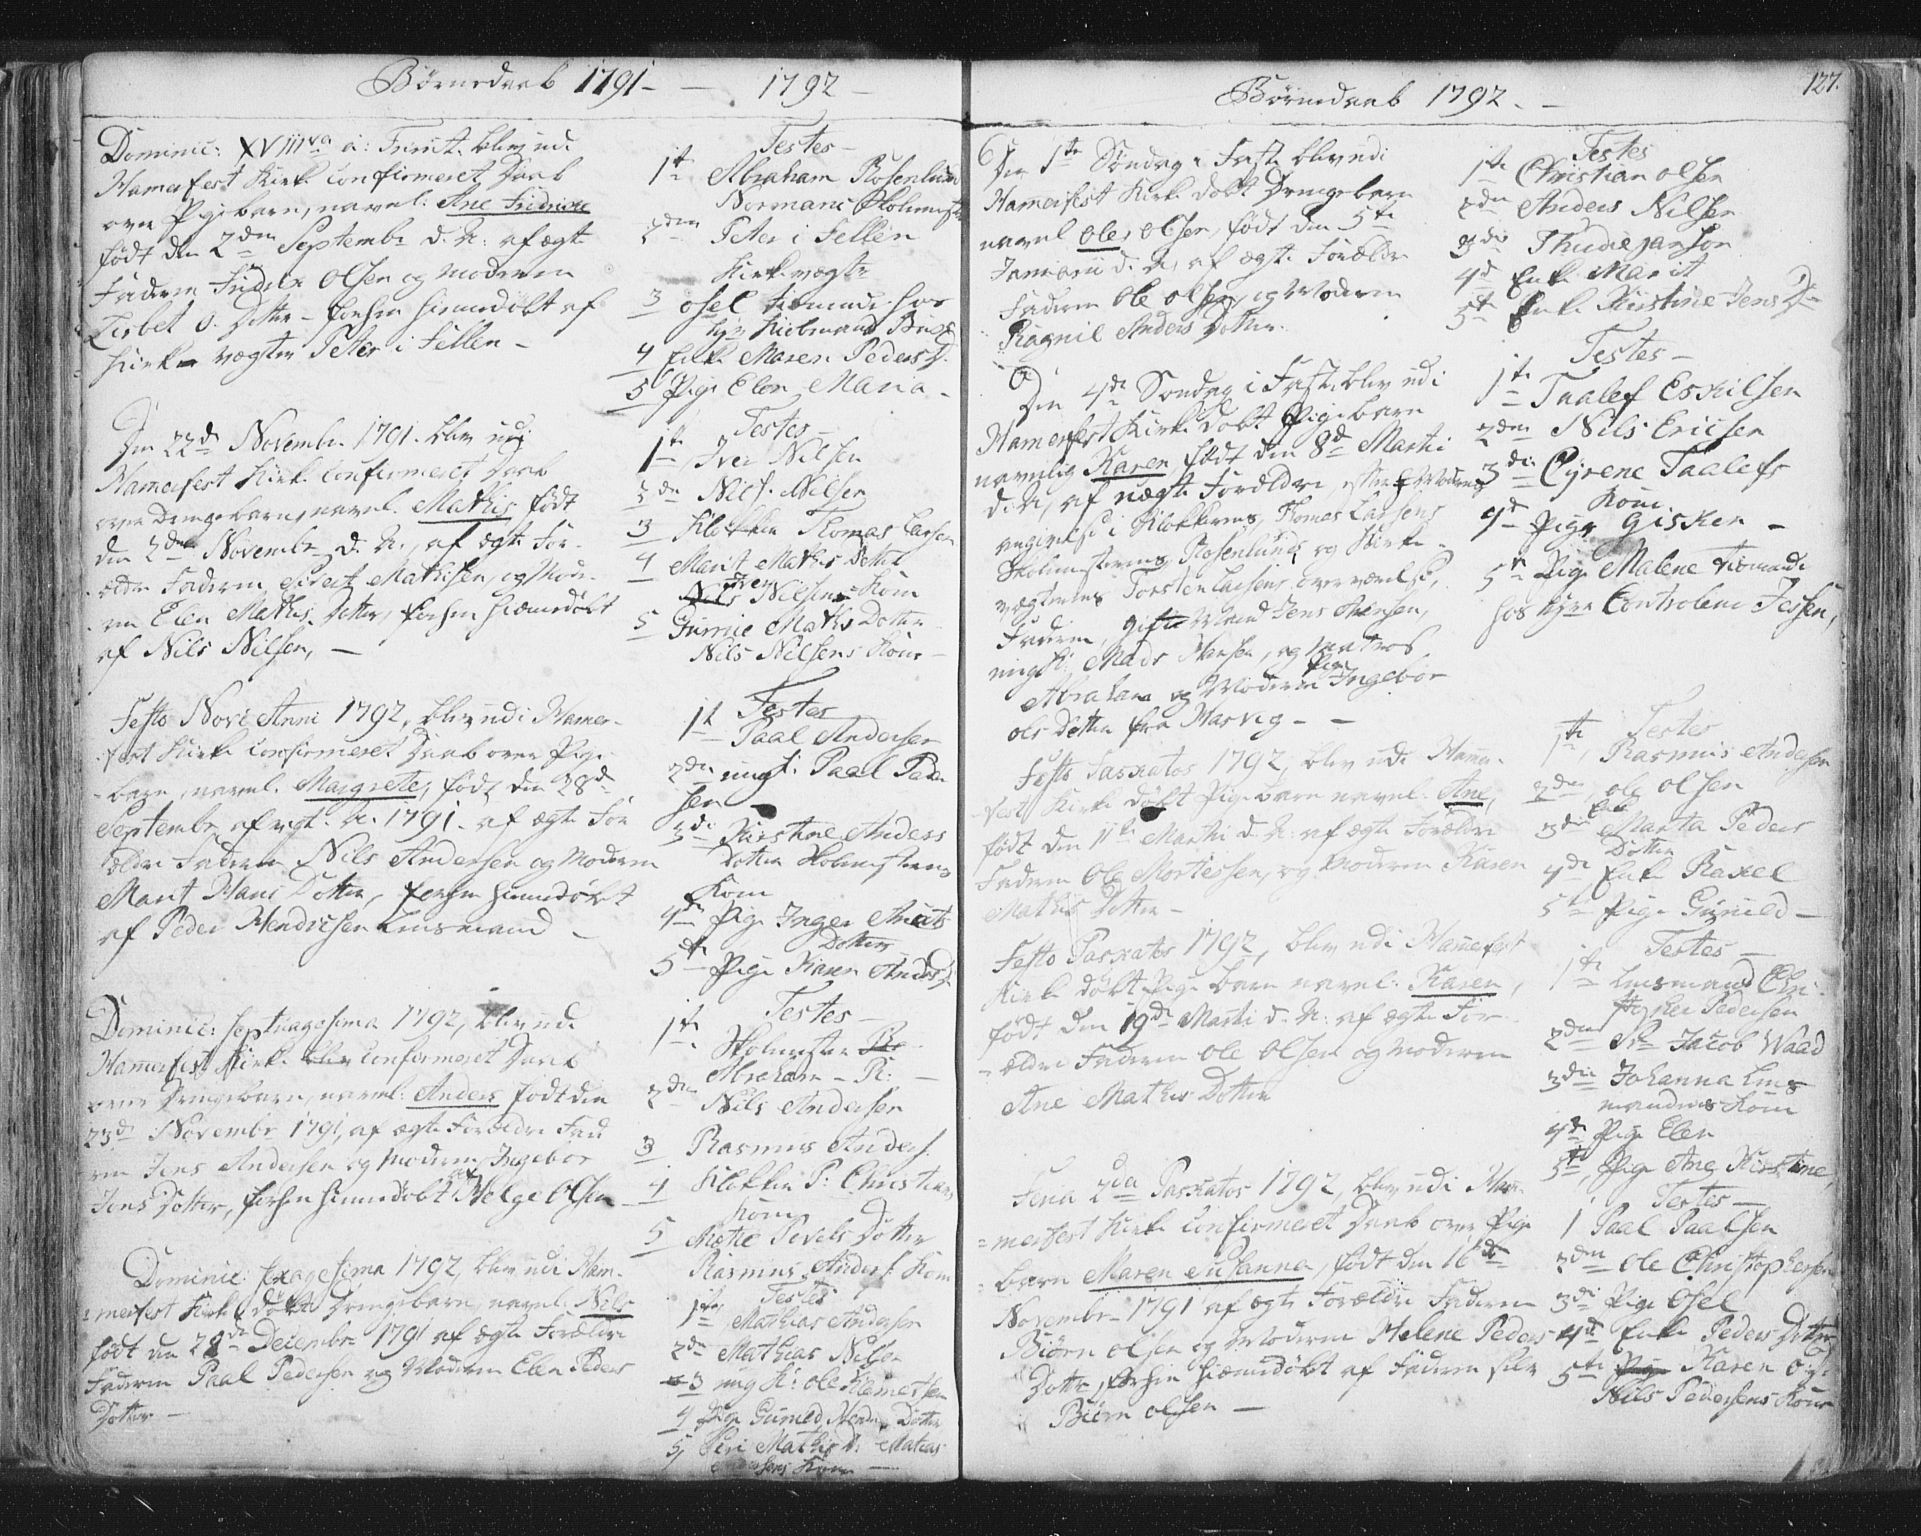 Børnedaab 1791 - - 1792 -
Dominic: XVIII va a: Trinit. blev udi
Hamerfest Kirke Confirmeret Daab
over Pigebarn, navnl: Ane Fridrica
født den 2den Septembr. d. A: af ægte
Faderen Fridrik Olsen og Moderen
Lisbet O. Dotter - forhen hiemedøbt af
Kirke vægter Peter i Fellen -
Testes -
1te Abraham Rosenlund
Normans Skolemester
2den Peter i Fellen
Kirkevægter
3 Osel tienende hos
Kiøbmand Busch
4 Enke Maren Peders D.
5 Pige Elen Maria -
Den 22de Novembr. 1791. blev udi
Hamerfest Kirke Confirmeret Daab
over Drengebarn, navnl. Mathis født
den 2den Novembr. d. A., af ægte For-
ældre Faderen Sivert Mathisen, og Mode-
ren Elen Mathis Dotter, forhen hiemedøbt
af Nils Nilsen, -
Testes -
1te Iver Nilsen
2de Nils Nilsen
3 Klokker Thomas Larsen
4 Marit Mathis Dotter
Iver Nilsens Kone
5 Gurine Mathis Dotter
Nils Nilsens Kone -
Festo Novi Anni 1792, blev udi Hamer-
fest Kirke Confirmeret Daab over Pige-
barn, navnl. Margrete, født den 28de
Septembr. afvigt. A. 1791. af ægte For
ældre Faderen Nils Andersen og Moderen
Marit Hans Dotter, forhen hiemedøbt
af Peder Hendricsen Lensmand -
Testes
1te Paal Andersen
2den ungk: Paal Peder
sen
3die Kirstine Anders
Dotter Skolemesterens
Kone
4de Pige Inger Anders
Dotter
5te Pige Karen Anders D.
Dominic: Septuagesima 1792, blev udi
Hamerfest Kirke Confirmeret Daab
over Drengebarn, navnl: Anders født den
23de Novembr. 1791, af ægte Forældre Fad
ren Jens Andersen og Moderen Ingebor
Jens Dotter, forhen hiemedøbt af Helge Olsen
Testes -
1te Skolemester
Abraham - R: -
2den Nils Andersen
3 Rasmus Anders:
4 Klokker P: Christians
Kone
5 Mette Povels Dotter
Rasmus Anders: Kone
Dominic: Sexagesima 1792, blev udi Ham-
merfest Kirke døbt Drengebarn, navnl. Nils
født den 28de Decembr. 1791 af ægte Forældre
Faderen Paal Pedersen og Moderen Elen Peders
Dotter -
Testes
1te Mathias Andersen
2de Mathias Nilsen
3 ung K: Ole Klemetsen
4 Pige Guneld Hend. Dotter
5 Siri Mathis D: Matias
Kone -
Børnedaab 1792. -
127.
Den 1te Søndag i Faste blev udi
Hamerfest Kirke døbt Drengebarn
navnl Ole Olsen, født den 5te
Januarii d. A, af ægte Forældre
Faderen Ole Olsen, og Moderen
Ragnil Anders Dotter.
Testes
1te Christian Olsen
2den Anders Nilsen
3die Thude Janson
4de Enke Marit
5te Enke Kirstine Jens D-
Den 4de Søndag i Faste blev udi
Hamerfest Kirke døbt Pigebarn
navnlig Karen født den 8de Martii
d. A, af uægte Forældre, efter Moderens
angivelse i Klokkerens, Thomes Larsens
Skolemesterens Rosenlunds og Kirke-
vægterens Torsten Larsens overværelse,
Faderen, gifte Mand Jens Hansen,
ungk: Mads Hansen, og Matros
Abraham og Moderen Pige Ingebor
Ols Dotter fra Hasvig - -
Testes -
1te Taalef Eskilsen
2den Nils Ericsen
3die Cyrene Taalefs
Kone
4de Pige Gisken -
5te Pige Malene tienende
hos Hyrr Controleur Jessen,
Festo Paskatos 1792, blev udi Hamer-
fest Kirke døbt Pigebarn navnl. Ane,
født den 11te Martii d. A: af ægte Forældre
Faderen Ole Mortessen, og Moderen Karen
Mathis Dotter -
Testes
1te Rasmus Andersen
2den Ole Olsen
3die Enke Marta Peders
Dotter
4de Enke Raxel
5te Pige Guneld -
Festo Paskatos 1792, blev udi Hamerfest
Kirke døbt Pige barn navnl: Karen,
født den 19de Martii d. A: af ægte For-
ældre Faderen Ole Olsen og Moderen
Ane Mathis Dotter
Testes -
1te Lensmand Chri-
stopher Pedersen
2den Sr. Jacob Waad
3die Johanna Lens
mandens Kone
4de Pige Elen
5te Pige Ane Kirstine,
Feria 2da Paskatos 1792, blev udi Ham-
merfest Kirke Confirmeret Daab over Pige
barn Maren Susanna, født den 16de
Novembr. 1791 af ægte Forældre Faderen
Biørn Olsen og Moderen Helene Peders
Dotter, forhen hiemedøbt af Faderen selv
Biørn Olsen -
Testes -
1 Paal Paalsen
2den Ole Christophersen
3die Pige Osel
4de Enke Peders Dotter
5te Karen
Nils Pedersens Kone